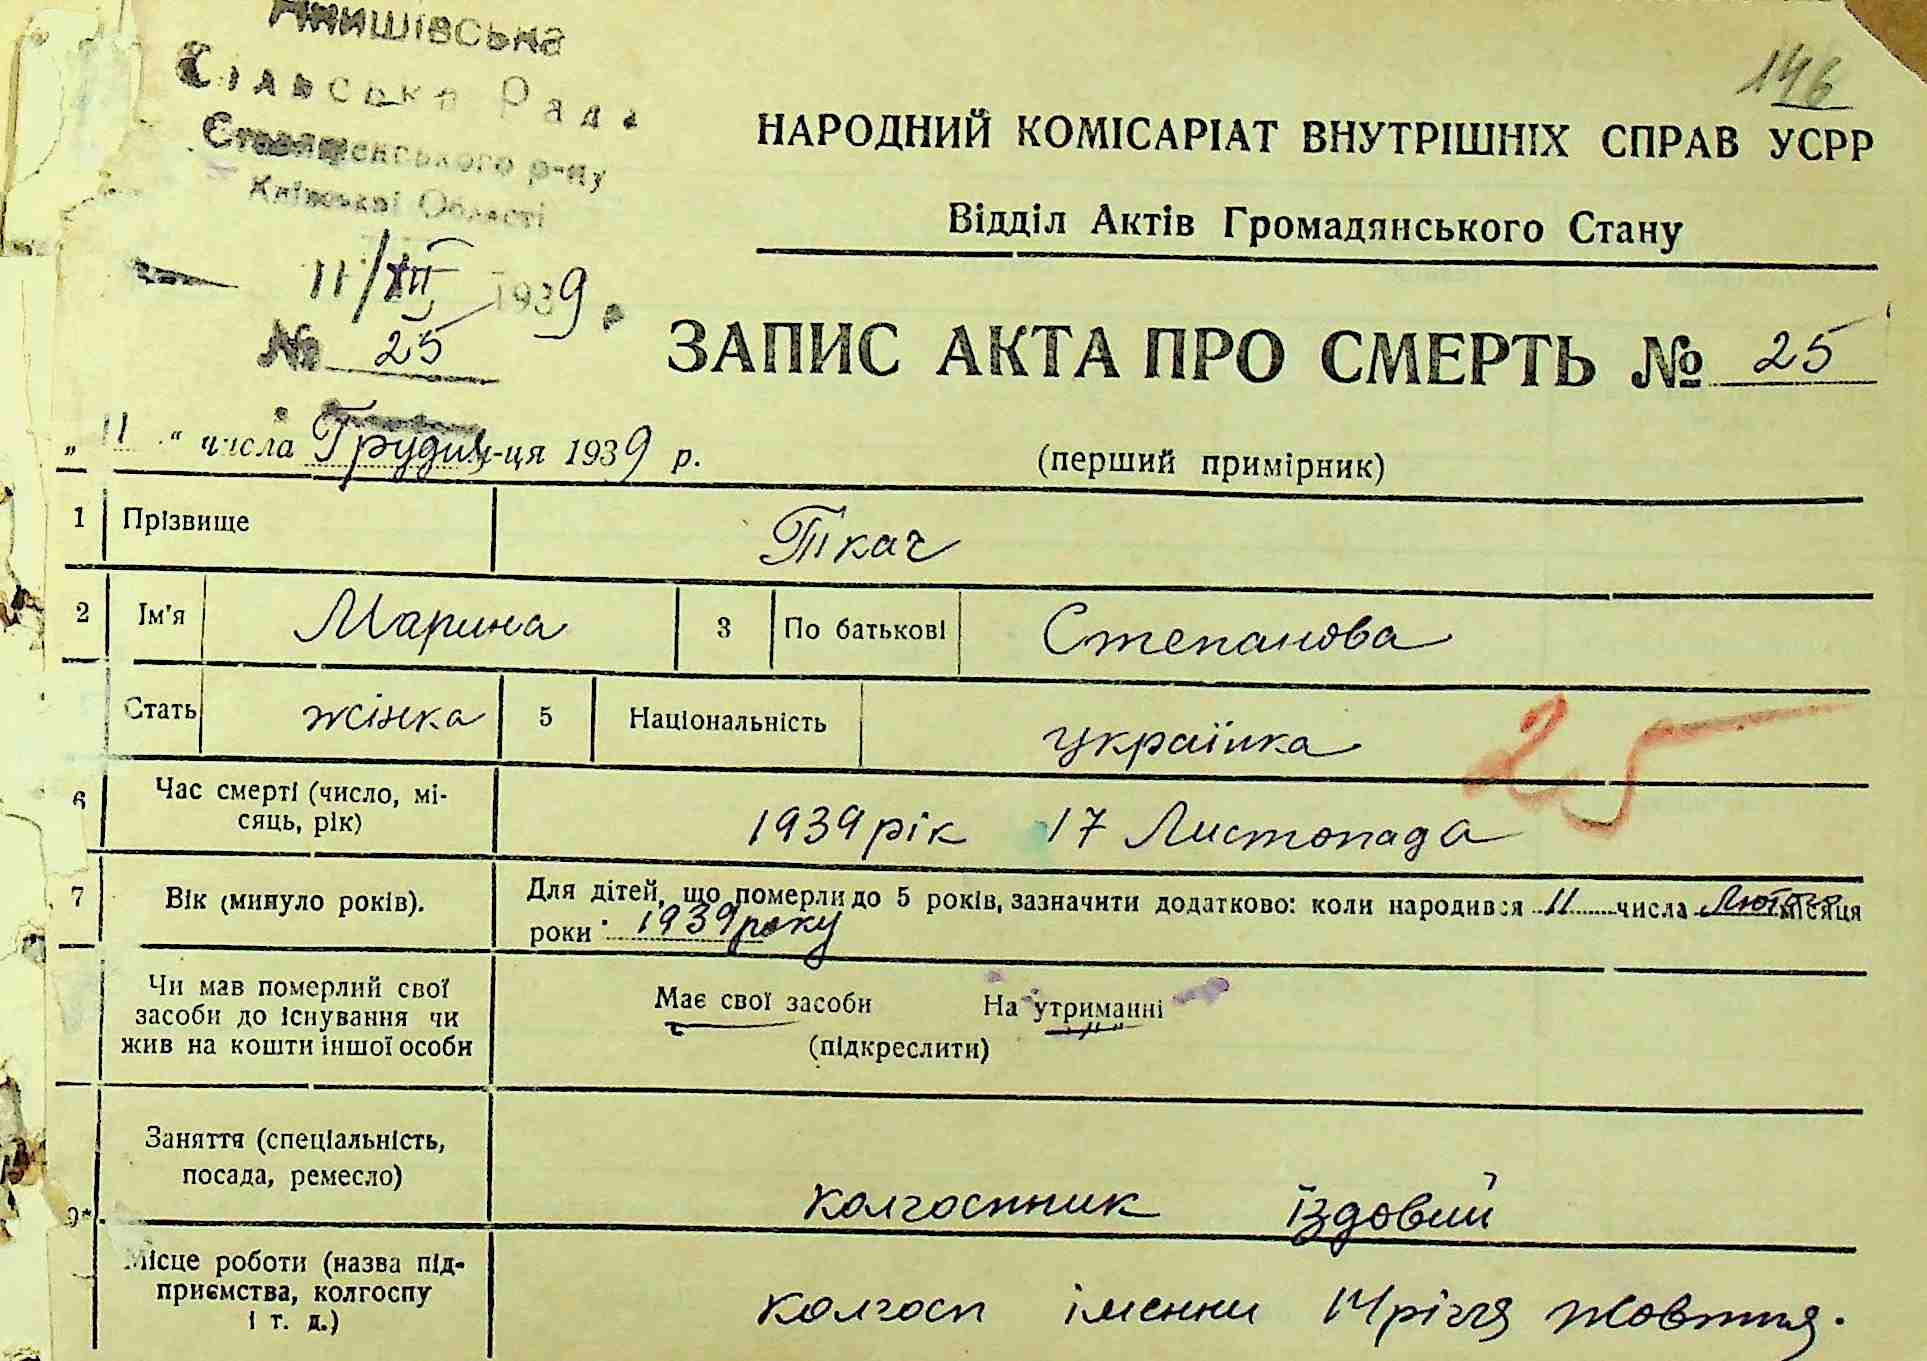 Сільська Рада
Ставищенського р-ну
Київської Області
146
НАРОДНИЙ КОМІСАРІАТ ВНУТРІШНІХ СПРАВ УСРР
Відділ Актів Громадянського Стану
11/XII 1939 р.
№ 25
ЗАПИС АКТА ПРО СМЕРТЬ № 25
„ 11 “ числа Грудня-ця 1939 р.
(перший примірник)
1 Прізвище Ткач
2 Ім'я Марина 3 По батькові Степанова
Стать жінка 5 Національність українка
25
6 Час смерті (число, мі-
сяць, рік) 1939 рік 17 Листопада
7 Вік (минуло років). Для дітей, що померли до 5 років, зазначити додатково: коли народився 11 числа Лютого місяця
роки 1939 року
Чи мав померлий свої
засоби до існування чи
жив на кошти іншої особи
Має свої засоби На утриманні
(підкреслити)
Заняття (спеціальність,
посада, ремесло)
колгоспник їздовий
9*
Місце роботи (назва під-
приємства, колгоспу
і т. д.)
колгосп іменни 14 річчя жовтня.